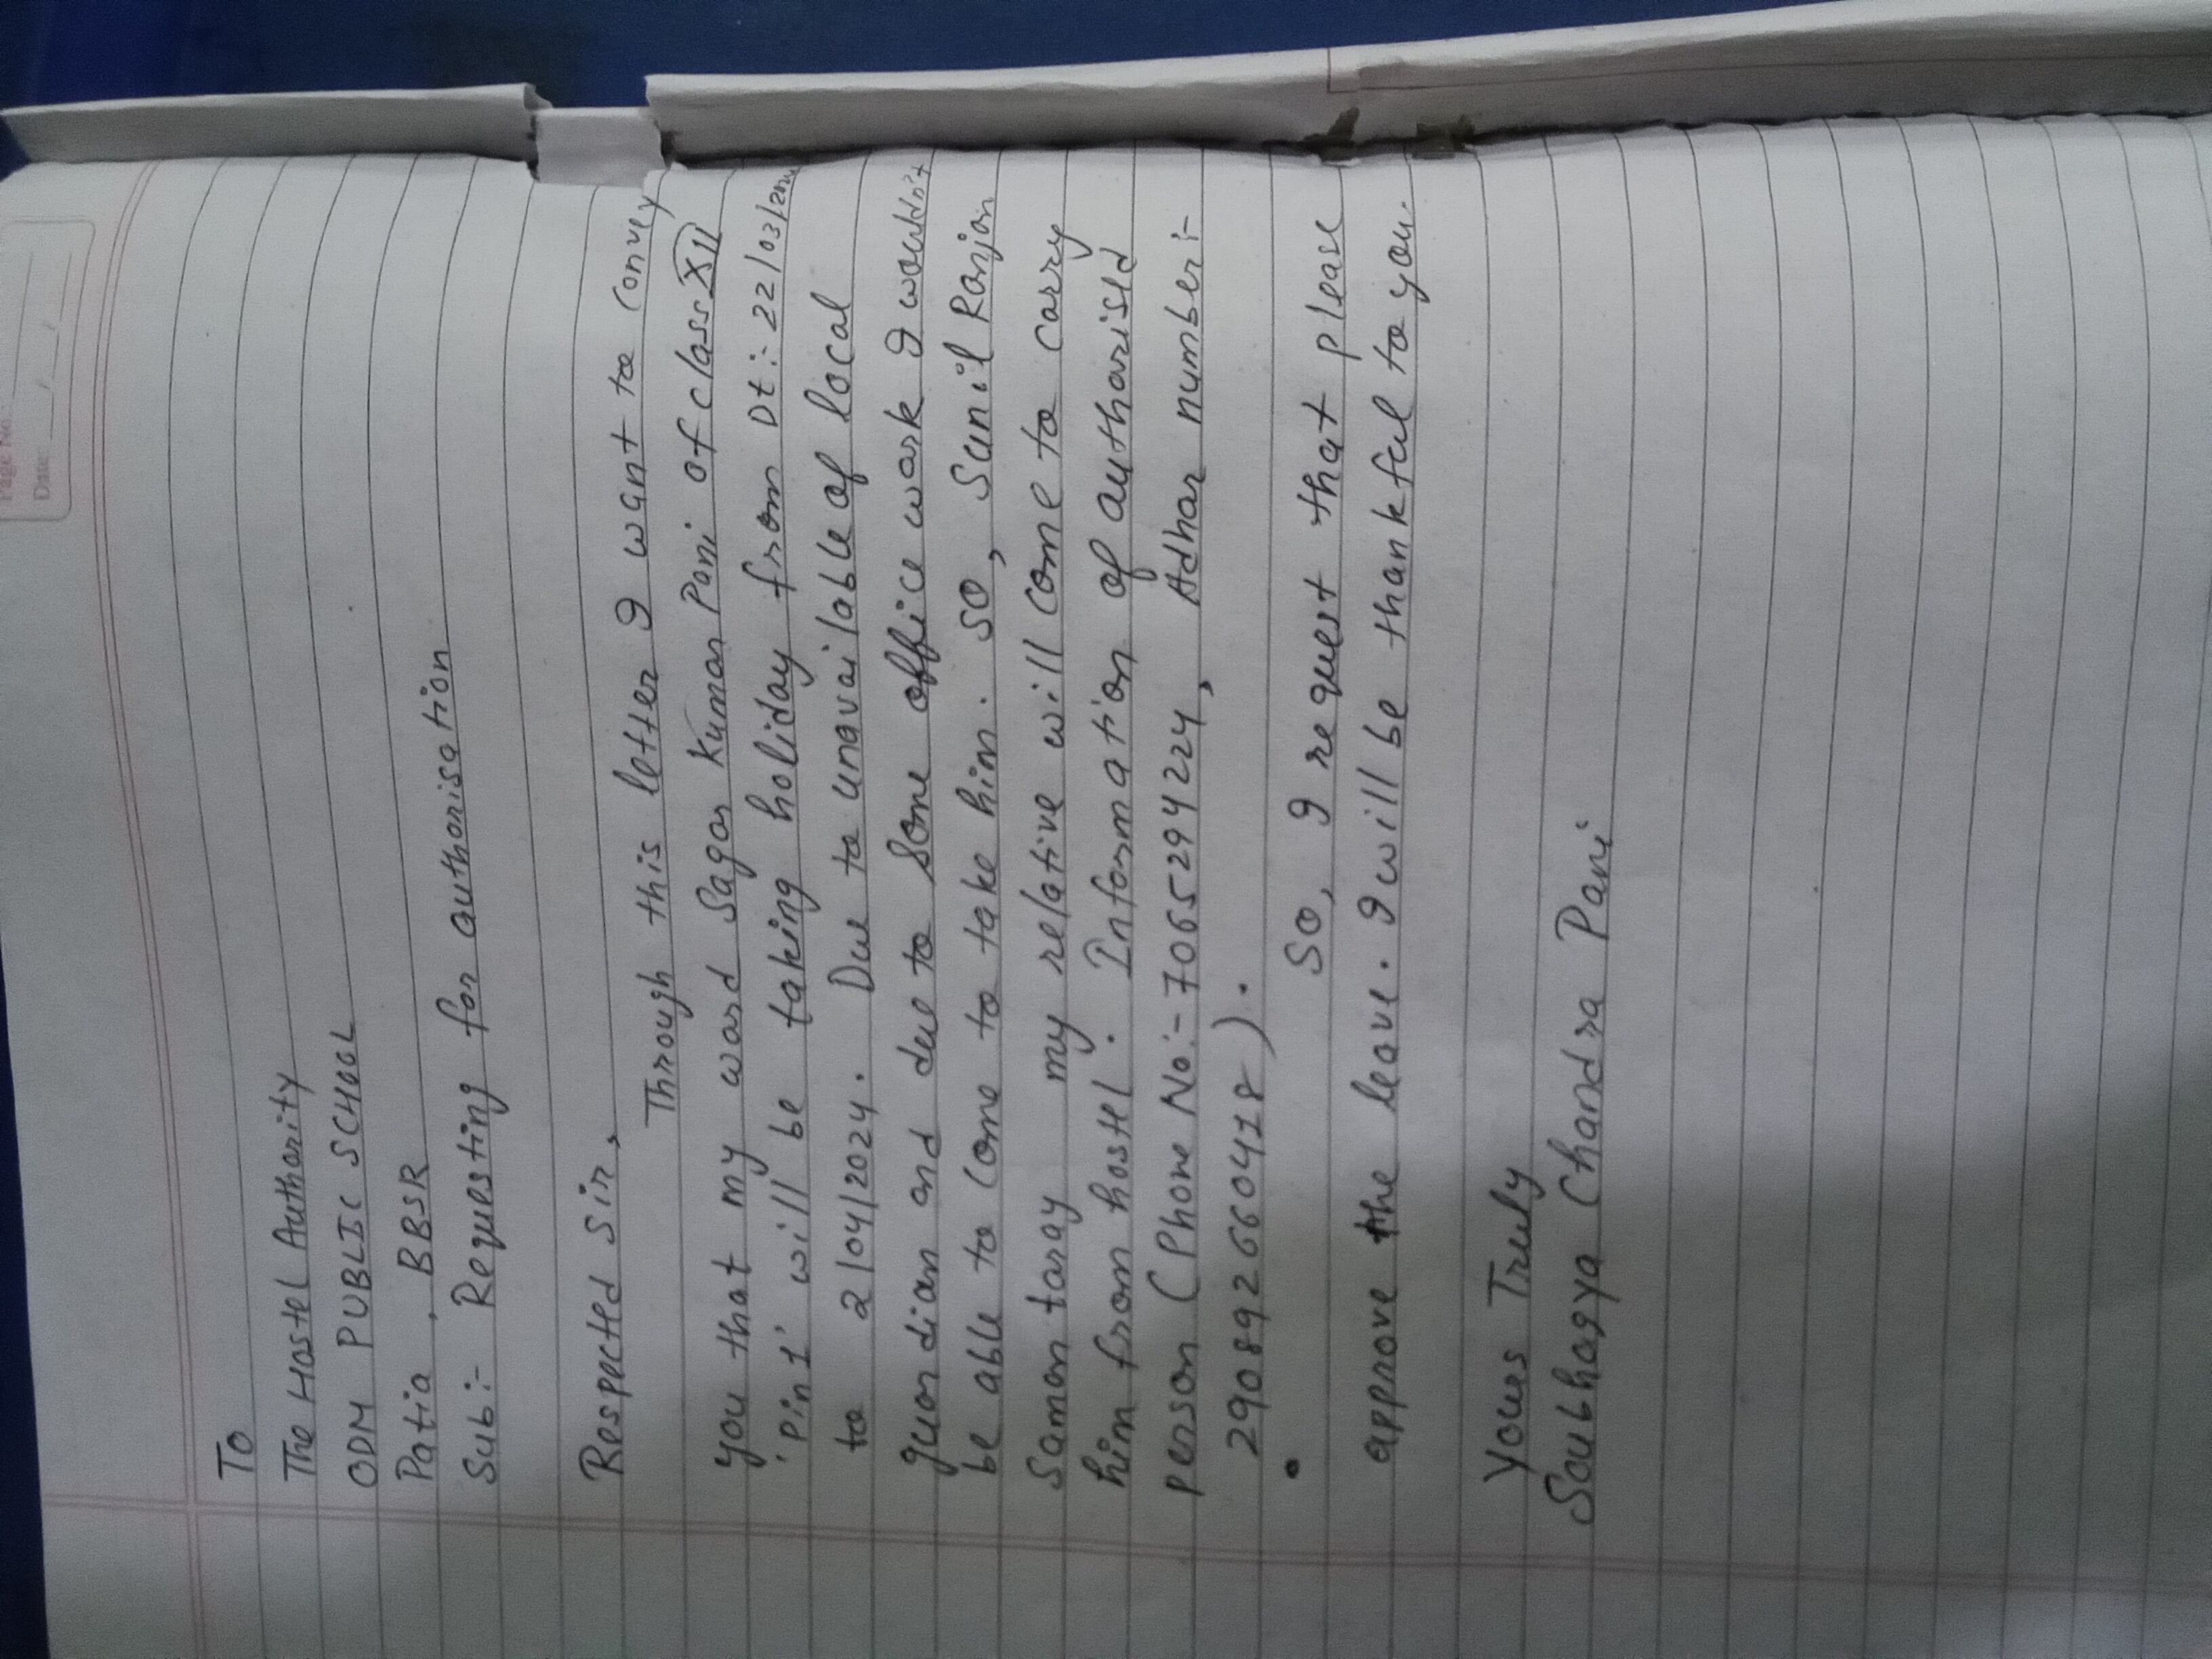 Page No.
Date: / /
To
The Hostel Authority
ODM PUBLIC SCHOOL
Patia, BBSR
Sub:- Requesting for authorisation
Respected Sir,
Through this letter I want to convey
you that my ward Sagar Kumar Pani of class XII
'Pin1' will be taking holiday from Dt:- 22/03/2024
to 2/04/2024. Due to unavailable of local
guardian and due to some office work I wouldn't
be able to come to take him. So, Sunil Ranjan
Samantaray my relative will come to carry
him from hostel. Information of authorised
person (Phone No:- 7065294224, Adhar number:-
290892660418).
So, I request that please
approve the leave. I will be thankful to you.
Yours Truly
Soubhagya Chandra Pani